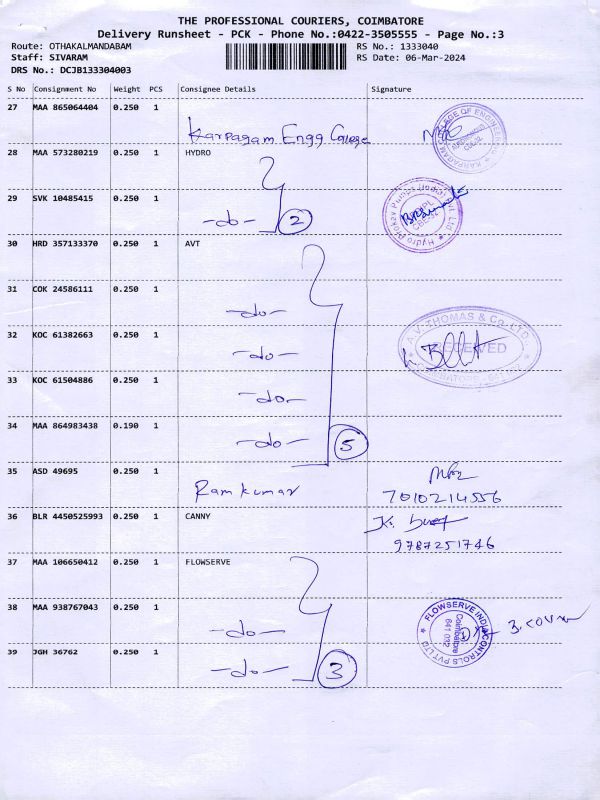 THE PROFESSIONAL COURIERS, COIMBATORE
Delivery Runsheet - PCK - Phone No.:0422-3505555 - Page No.:3
Route: OTHAKALMANDABAM RS No.: 1333040
Staff: SIVARAM RS Date: 06-Mar-2024
DRS No.: DCJB133304003
S No Consignment No Weight PCS Consignee Details Signature
27 MAA 865064404 0.250 1
Karpagam Engg College
28 MAA 573280219 0.250 1 HYDRO
29 SVK 10485415 0.250 1
-do- 2
Hydro Prokav Pumps (India) Pvt. Ltd
30 HRD 357133370 0.250 1 AVT
31 COK 24586111 0.250 1
-do-
32 KOC 61382663 0.250 1
-do-
A.V. THOMAS & Co. LTD.
RECEIVED
33 KOC 61504886 0.250 1
-do-
34 MAA 864983438 0.190 1
-do- 5
35 ASD 49695 0.250 1
Ram kumar
7010214556
36 BLR 4450525993 0.250 1 CANNY
9787251746
37 MAA 106650412 0.250 1 FLOWSERVE
38 MAA 938767043 0.250 1
-do-
FLOWSERVE INDIA CONTROLS PVT LTD
Coimbatore
641 032
39 JGH 36762 0.250 1
-do- 3